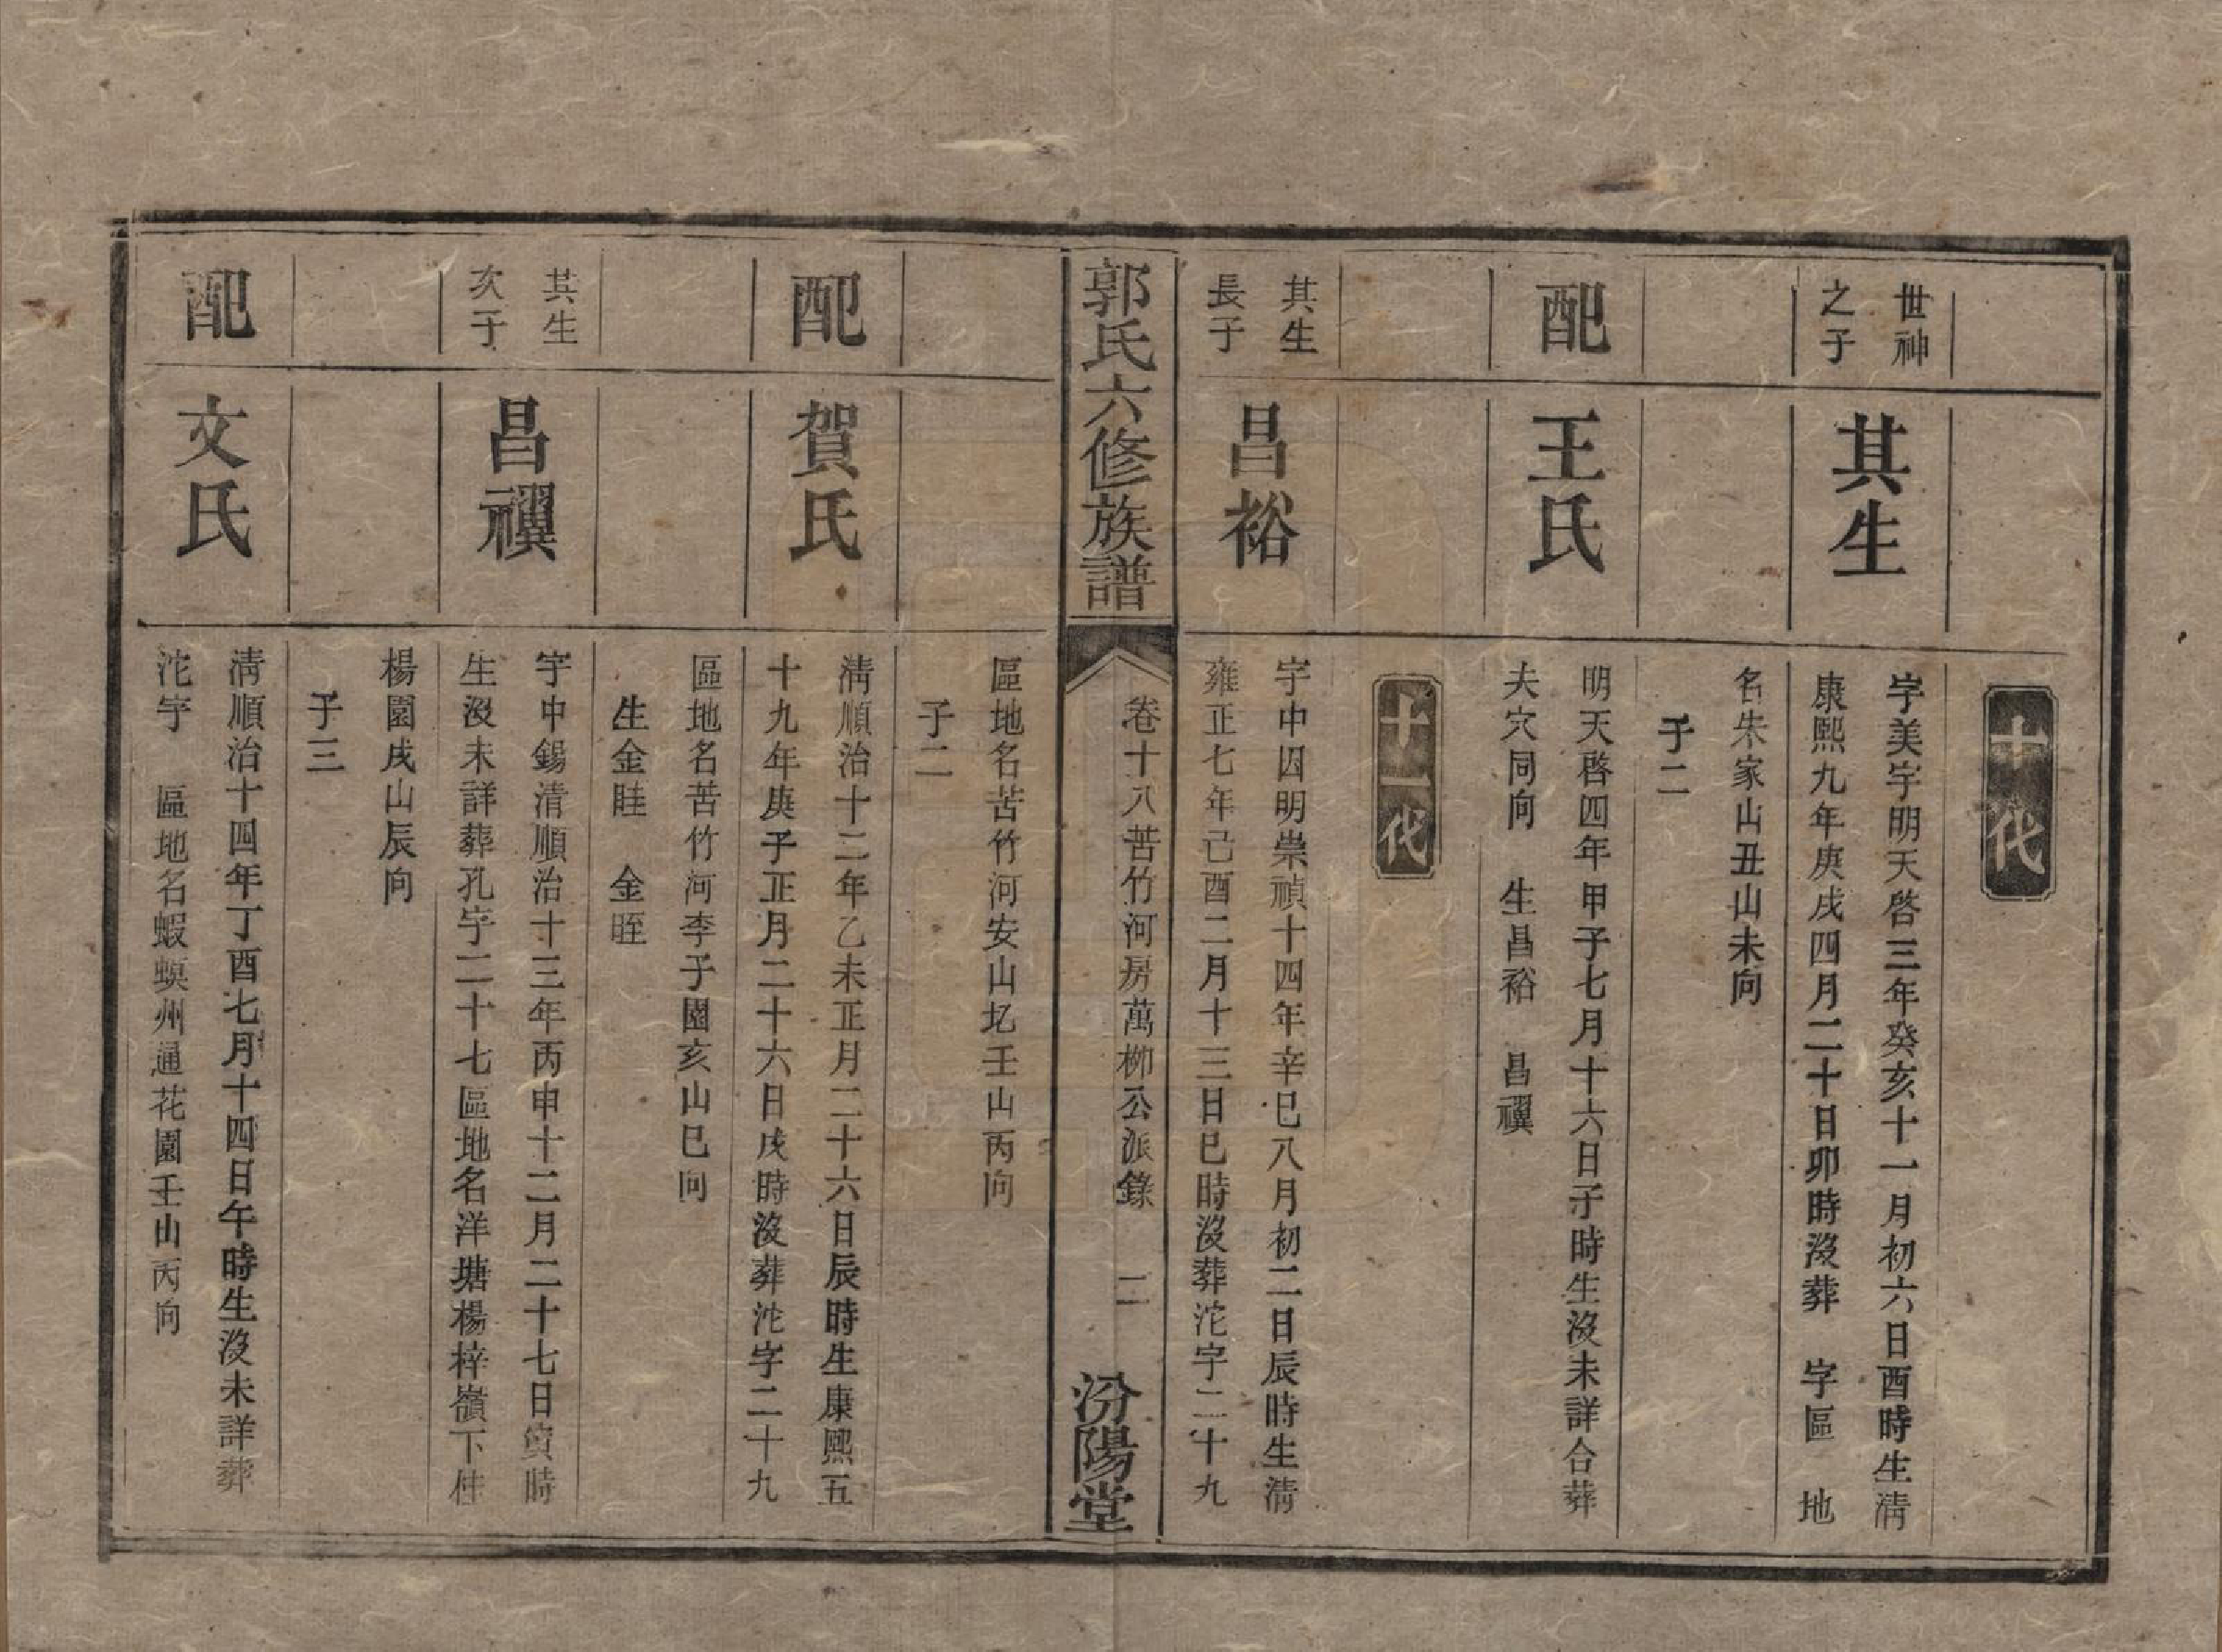 十代
世神
之子
其生
字美宇明天啓三年癸亥十一月初六日酉時生清
康熙九年庚戌四月二十日卯時沒葬 字區 地
名朱家山丑山未向
子二
配
王氏
明天啓四年甲子七月十六日子時生沒未詳合葬
夫穴同向 生昌裕 昌禩
十一代
其生
長子
昌裕
字中因明崇禎十四年辛巳八月初二日辰時生清
雍正七年己酉二月十三日巳時沒葬沱字二十九
郭氏六修族譜
卷十八苦竹河房萬柳公派錄 二
汾陽堂
區地名苦竹河安山圠壬山丙向
子二
配
賀氏
清順治十二年乙未正月二十六日辰時生康熙五
十九年庚子正月二十六日戌時沒葬沱字二十九
區地名苦竹河李子園亥山巳向
生金眭 金眰
其生
次子
昌禩
字中錫清順治十三年丙申十二月二十七日寅時
生沒未詳葬孔字二十七區地名洋塘楊梓嶺下桂
楊園戌山辰向
子三
配
文氏
清順治十四年丁酉七月十四日午時生沒未詳葬
沱字 區地名蝦蟆州通花園壬山丙向